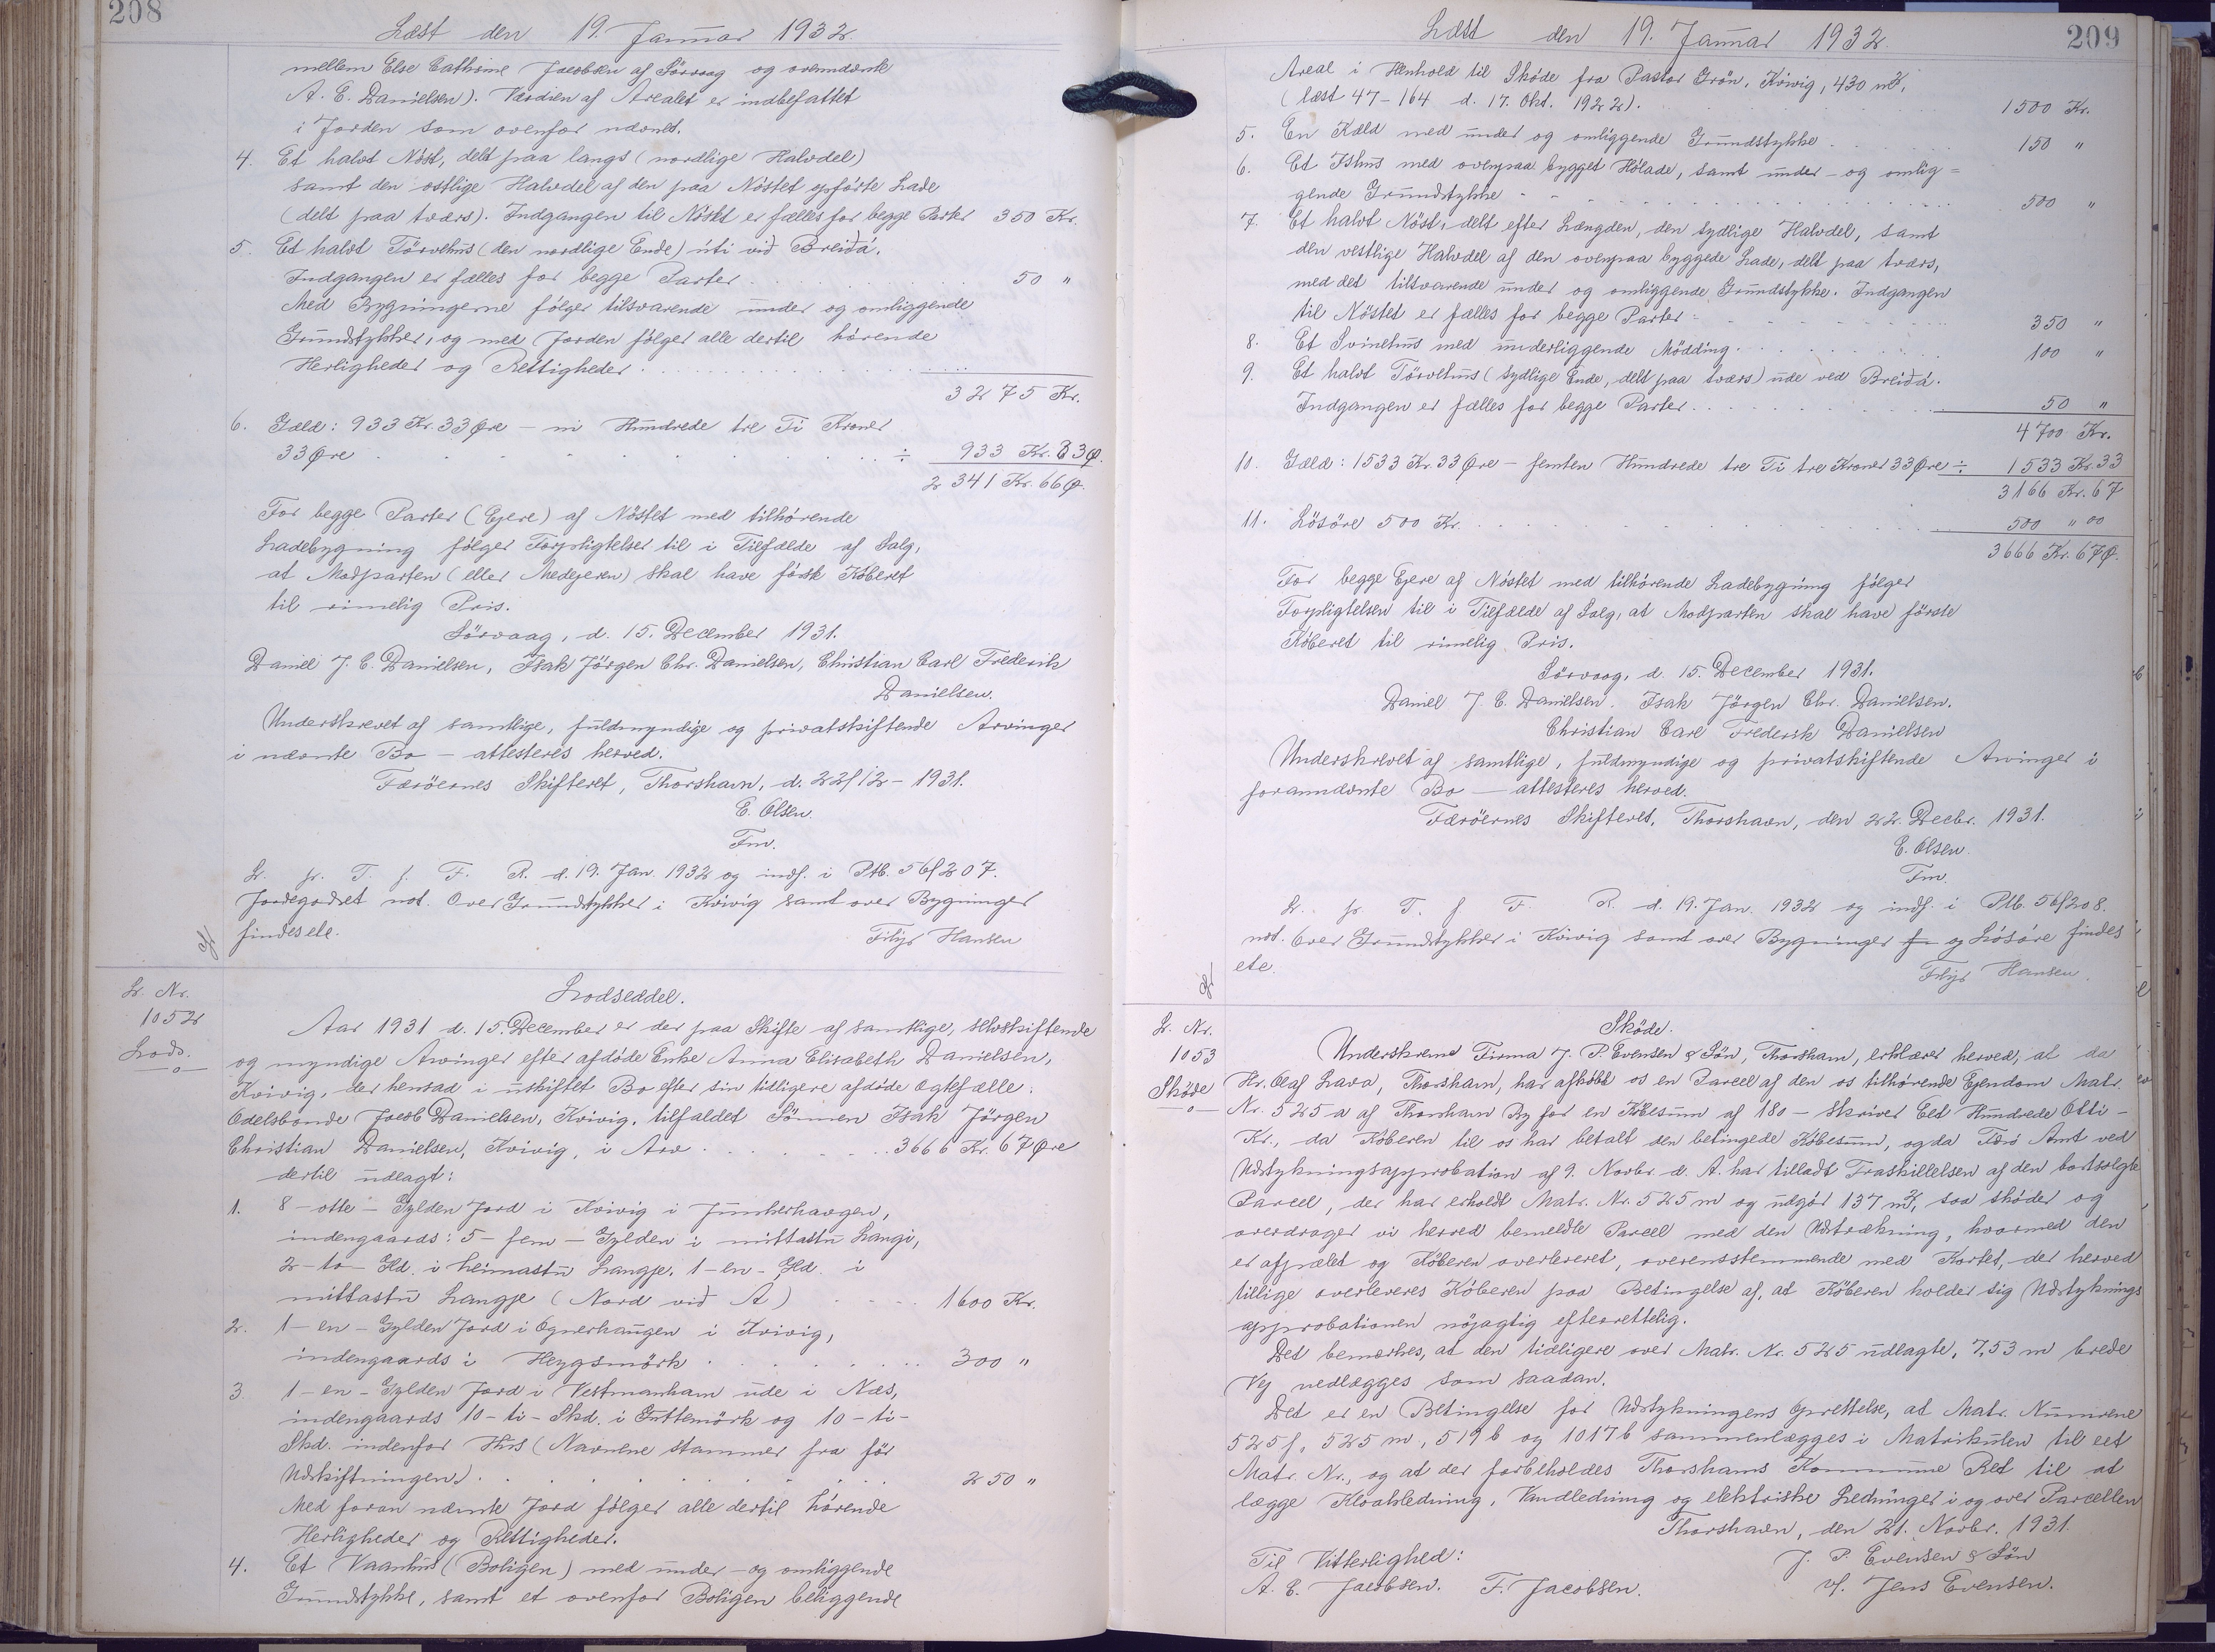 208
Læst den 19. Januar 1932.
mellem Else Cathrine Jacobsen af Sörvaag og ovennævnte
A. E. Danielsen). Værdien af Arealet er indbefattet
i Jorden som ovenfor nævnt.
4. Et halvt Nöst, delt paa langs (nordlige Halvdel)
samt den östlige Halvdel af den paa Nöstet opförte Lade
(delt paa tværs). Indgangen til Nöstet er fælles for begge Parter 350 Kr.
5. Et halvt Törvehus (den nordlige Ende) úti við Breiðá.
Indgangen er fælles for begge Parter . . . 50 "
Med Bygningerne fölger tilsvarende under og omliggende
Grundstykker, og med Jorden fölger alle dertil hörende
Herligheder og Rettigheder . . .
3275 Kr.
6. Gæld: 933 Kr. 33 Øre – ni Hundrede tre Ti Kroner
33 Øre . . . ÷ 933 Kr. 33 Ø.
2341 Kr. 66 Ø.
For begge Parter (Ejere) af Nöstet med tilhörende
Ladebygning fölger Forpligtelser til i Tilfælde af Salg,
at Modparten (eller Medejeren) skal have förste Köberet
til rimelig Pris.
Sörvaag, d. 15. December 1931.
Daniel J. C. Danielsen, Isak Jörgen Chr. Danielsen, Christian Carl Frederik
Danielsen.
Underskrevet af samtlige, fuldmyndige og privatskiftende Arvinger
i nævnte Bo – attesteres herved.
Færöernes Skifteret, Thorshavn, d. 22/12 – 1931.
E. Olsen.
Fm.
L. p. T. f. F. R. d. 19. Jan. 1932 og indf. i Ptb. 56/207.
Jordegodset not. Over Grundstykker i Kvivig samt over Bygninger
findes ele.
Filip Hansen
L. Nr.
1052
Lods.
Lodseddel.
Aar 1931 d. 15. December er der paa Skifte af samtlige, selvskiftende
og myndige Arvinger efter afdöde Enke Anna Elisabeth Danielsen,
Kvivig, der hensad i uskiftet Bo efter sin tidligere afdöde Ægtefælle:
Odelsbonde Jacob Danielsen, Kvivig, tilfaldet Sönnen Isak Jörgen
Christian Danielsen, Kvivig, i Arv . . . 3666 Kr. 67 Øre
dertil udlagt:
1. 8 – otte – Gylden Jord i Kvivig i Junkerhaugen,
indengaards: 5 – fem – Gylden i mittastu Langi,
2 – to – Gld. i heimastu Langje, 1 – en – Gld. i
mittastu Langje (Nord við Á) . . . 1600 Kr.
2. 1 – en – Gylden Jord i Ognerhaugen i Kvivig,
indengaards i Heygsmörk . . . 300 "
3. 1 – en – Gylden Jord i Vestmanhavn ude i Næs,
indengaards 10 – ti – Skd. i Guttemörk og 10 – ti –
Skd. indenfor Hús (Navnene stammer fra för
Udskiftningen) . . . 250 "
Med foran nævnte Jord fölger alle dertil hörende
Herligheder og Rettigheder.
4. Et Vaanhus (Boligen) med under – og omliggende
Grundstykke, samt et ovenfor Boligen beliggende
209
Læst den 19. Januar 1932.
Areal i Henhold til Sköde fra Pastor Grön, Kvivig, 430 m²,
(læst 47 – 164 d. 17. Okt. 1922). . . . 1500 Kr.
5. En Kæld med under og omliggende Grundstykke . . . 150 "
6. Et Ishus med ovenpaa bygget Hölade, samt under – og omlig=
gende Grundstykke . . . 500 "
7. Et halvt Nöst, delt efter Længden, den sydlige Halvdel, samt
den vestlige Halvdel af den ovenpaa byggede Lade, delt paa tværs,
med det tilsvarende under og omliggende Grundstykke. Indgangen
til Nöstet er fælles for begge Parter . . . 350 "
8. Et Svinehus med underliggende Mödding . . . 100 "
9. Et halvt Törvehus (sydlige Ende, delt paa tværs) ude ved Breiðá.
Indgangen er fælles for begge Parter . . . 50 "
4700 Kr.
10. Gæld: 1533 Kr. 33 Øre – femten Hundrede tre Ti tre Kroner 33 Øre ÷ 1533 Kr. 33
3166 Kr. 67
11. Lösöre 500 Kr. . . . 500 " 00
3666 Kr. 67 Ø.
For begge Ejere af Nöstet med tilhörende Ladebygning fölger
Forpligtelsen til i Tilfælde af Salg, at Modparten skal have förste
Köberet til rimelig Pris.
Sörvaag, d. 15. December 1931.
Daniel J. C. Danielsen. Isak Jörgen Chr. Danielsen.
Christian Carl Frederik Danielsen
Underskrevet af samtlige, fuldmyndige og privatskiftende Arvinger i
forannævnte Bo – attesteres herved.
Færöernes Skifteret, Thorshavn, den 22. Decbr. 1931.
E. Olsen.
Fm.
L. p. T. f. F. R. d. 19. Jan. 1932 og indf. i Ptb. 56/208.
not. Over Grundstykker i Kvivig samt over Bygninger og Lösöre findes
ele.
Filip Hansen.
L. Nr.
1053
Sköde
Sköde.
Underskrevne Firma J. P. Evensen & Sön, Thorshavn, erklærer herved, at da
Hr. Olaf Lava, Thorshavn, har afköbt os en Parcel af den os tilhörende Ejendom Matr.
Nr. 525 a af Thorshavn By for en Köbesum af 180 – skriver Eet Hundrede Otti –
Kr., da Köberen til os har betalt den betingede Köbesum, og da Færö Amt ved
Udstykningsapprobation af 9. Novbr. d. A. har tilladt Fraskillelsen af den bortsolgte
Parcel, der har erholdt Matr. Nr. 525 m og udgör 137 m², saa sköder og
overdrager vi herved bemeldte Parcel med den Udstrækning, hvormed den
er afpælet og Köberen overleveret, overensstemmende med Kortet, der herved
tillige overleveres Köberen paa Betingelse af, at Köberen holder sig Udstyknings
approbationen nöjagtig efterrettelig.
Det bemærkes, at den tidligere over Matr. Nr. 525 udlagte, 7,53 m brede
Vej nedlægges som saadan.
Det er en Betingelse for Udstykningens Oprettelse, at Matr. Numrene
525 f, 525 m, 519 b og 1017 b sammenlægges i Matrikulen til eet
Matr. Nr., og at der forbeholdes Thorshavns Kommune Ret til at
lægge Kloakledning, Vandledning og elektriske Ledninger i og over Parcellen
Thorshavn, den 21. Novbr. 1931.
Til Vitterlighed:
J. P. Evensen & Sön
A. C. Jacobsen. F. Jacobsen.
v/. Jens Evensen.